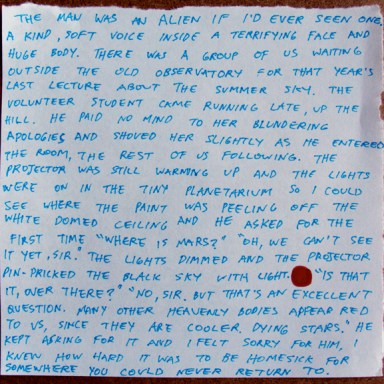 THE MAN WAS AN ALIEN IF I'D EVER SEEN ONE,
A KIND, SOFT VOICE INSIDE A TERRIFYING FACE AND
HUGE BODY. THERE WAS A GROUP OF US WAITING
OUTSIDE THE OLD OBSERVATORY FOR THAT YEAR'S
LAST LECTURE ABOUT THE SUMMER SKY. THE
VOLUNTEER STUDENT CAME RUNNING LATE, UP THE
HILL. HE PAID NO MIND TO HER BLUNDERING
APOLOGIES AND SHOVED HER SLIGHTLY AS HE ENTERED
THE ROOM, THE REST OF US FOLLOWING. THE
PROJECTOR WAS STILL WARMING UP AND THE LIGHTS
WERE ON IN THE TINY PLANETARIUM SO I COULD
SEE WHERE THE PAINT WAS PEELING OFF THE
WHITE DOMED CEILING AND HE ASKED FOR THE
FIRST TIME "WHERE IS MARS?" "OH, WE CAN'T SEE
IT YET, SIR." THE LIGHTS DIMMED AND THE PROJECTOR
PIN-PRICKED THE BLACK SKY WITH LIGHT. "IS THAT
IT, OVER THERE?" "NO, SIR. BUT THAT'S AN EXCELLENT
QUESTION. MANY OTHER HEAVENLY BODIES APPEAR RED
TO US, SINCE THEY ARE COOLER. DYING STARS." HE
KEPT ASKING FOR IT AND I FELT SORRY FOR HIM, I
KNEW HOW HARD IT WAS TO BE HOMESICK FOR
SOMEWHERE YOU COULD NEVER RETURN TO.